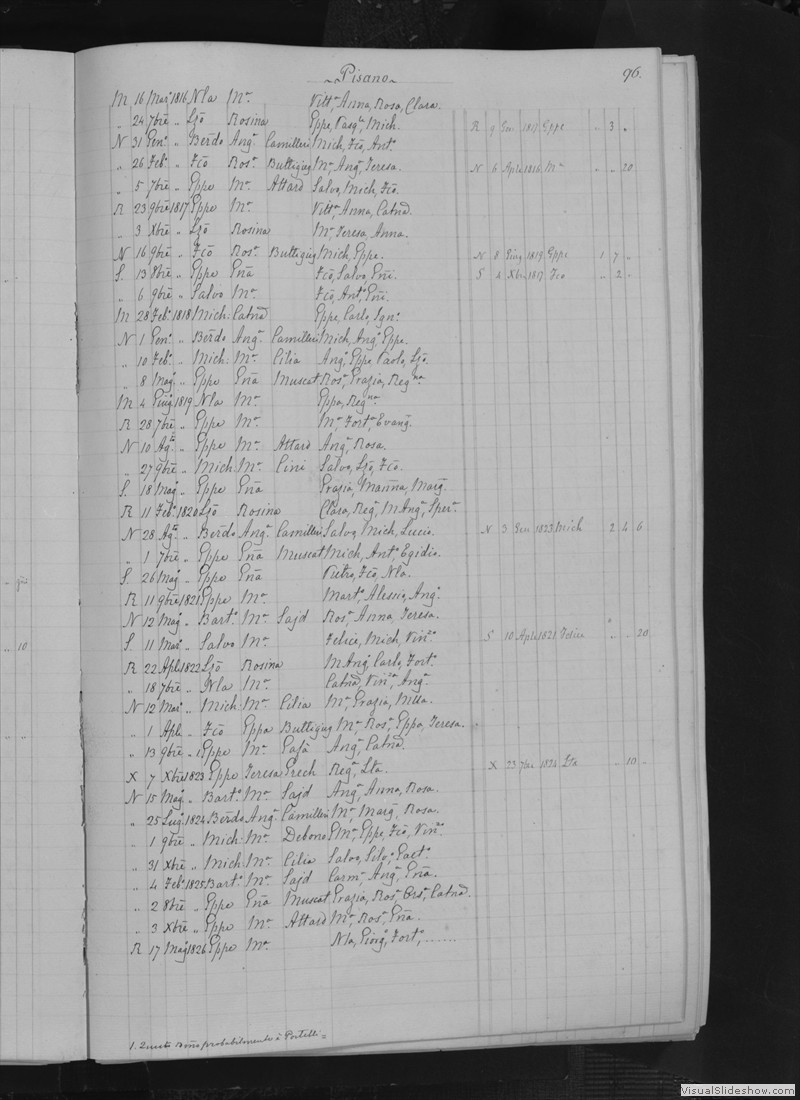 ~ Pisano ~ 96.
M 16 Mar° 1816 Nla Mª Vittª Anna, Rosa, Clara.
„ 24 7brē „ Ljō Rosina Eppe, Pasqle, Mich. R 9 Gen 1817 Eppe „ 3 „
N 31 Gen° „ Berdo Angª Camilleri Mich, Fcō, Ant°
„ 26 Feb° „ Fcō Rosª Buttigieg Mª, Angª, Teresa. N 6 Aple 1816 Mª „ „ 20
„ 5 7brē „ Eppe Mª Attard Salvo, Mich, Fcō.
R 23 9brē 1817 Eppe Mª Vittª, Anna, Catnā.
„ 3 Xbrē „ Ljō Rosina Mª Teresa, Anna.
N 16 9brē „ Fcō Rosª Buttigieg Mich, Eppe. N 8 Giug 1819 Eppe 1 7 „
S. 13 8brē „ Eppe Gnā Fcō, Salvo, Gni. S 4 Xbre 1817 Fco „ 2 „
„ 6 9brē „ Salvo Mª Fcō, Ant°, Gni.
M 28 Feb° 1818 Mich: Catnā Eppe, Carlo, Ign°.
N 1 Gen° „ Berdo Angª Camilleri Mich, Ang° Eppe.
„ 10 Feb° „ Mich: Mª Cilia Ang°, Eppe, Paolo, Ljō.
„ 8 Mag° „ Eppe Gnā Muscat Rosª, Grazia, Regna
M 4 Giug° 1819 Nla Mª Eppa, Regna
R 28 7brē „ Eppe Mª Mª, Fortª, Evang.
N 10 Ag.to „ Eppe Mª Attard Angª, Rosa.
„ 27 9brē „ Mich: Mª Cini Salvo, Ljō, Fcō.
S. 18 Mag° „ Eppe Gnā Grazia, Marina, Marg.
R 11 Feb° 1820 Ljō Rosina Clara, Regª, M Angª, Sperª.
N 28 Ag.to „ Berdo Angª Camilleri Salvo, Mich, Lucio. N 3 Gen 1823 Mich 2 4 6
„ 1 7brē „ Eppe Gnā Muscat Mich, Ant°, Egidio.
S. 26 Mag° „ Eppe Gnā Pietro, Fcō, Nla.
R 11 9brē 1821 Eppe Mª Mart°, Alessio, Ang°
N 12 Mag° „ Bart° Mª Sajd Rosª, Anna, Teresa.
S. 11 Mar° „ Salvo Mª Felice, Mich, Vinzo S 10 Aple 1821 Felice „ „ 20
R 22 Aple 1822 Ljō Rosina M Ang°, Carlo, Fort°
„ 18 7brē „ Nla Mª Catnā, Vinza, Angª
N 12 Mar° „ Mich: Mª Cilia Mª, Grazia,
„ 1 Aple „ Fcō Eppa Buttigieg Mª, Rosª, Eppa, Teresa.
„ 13 9brē „ 1 Eppe Mª Angª, Catnā.
X 7 Xbrē 1823 Eppe Teresa Grech Regª, Lta. X 23 7bre 1824 Lta „ 10 „
N 15 Mag° „ Bart° Mª Sajd Angª, Anna, Rosa.
„ 25 Lug° 1824 Berdo Angª Camilleri Mª, Marg, Rosa.
„ 1 9brē „ Mich: Mª Debono Eppe, Fcō, Vinzo
„ 31 Xbrē „ Mich: Mª Cilia Salvo, Silv°, Gaet°
„ 4 Feb° 1825 Bart° Mª Sajd Carmª, Angª, Gnā.
„ 2 8brē „ Eppe Gnā Muscat Grazia, Rosª, Orsª, Catnā.
„ 3 Xbrē „ Eppe Mª Attard Mª, Rosª, Gnā.
R 17 Mag° 1826 Eppe Mª Nla, Giorg°, Fort°, ........
1. probabilmente è Portelli =
„ 10
VisualSlideshow.com